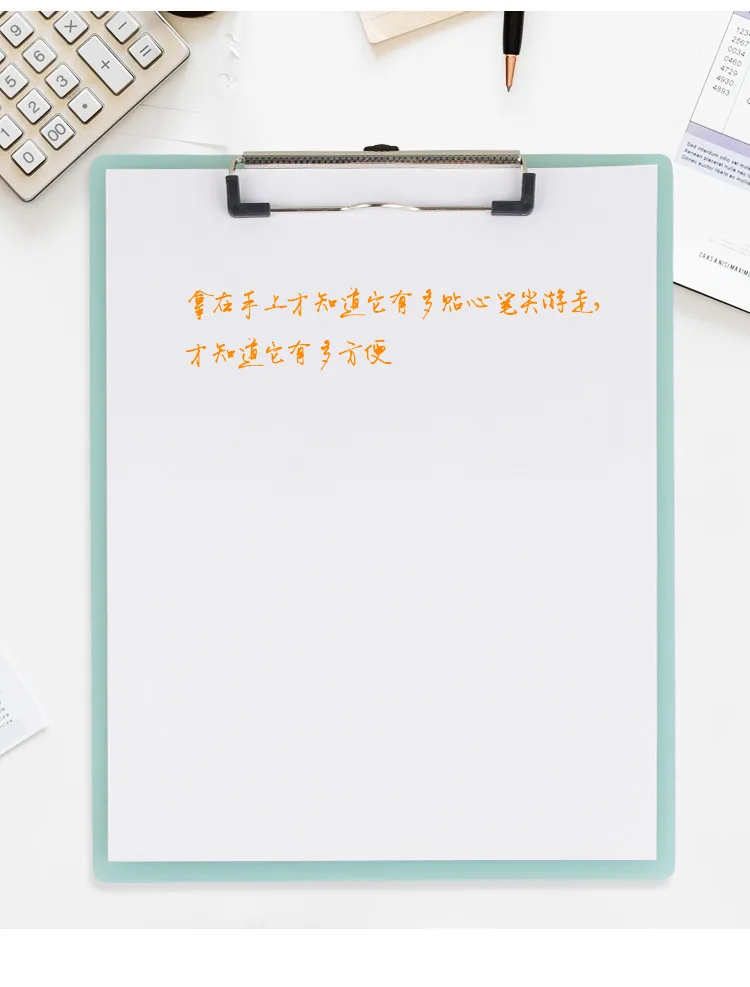 拿在手上才知道它有多贴心笔尖游走，
才知道它有多方便
9
6
5
3
2
1
0
00
.
×
+
=
1234
2567
0034
0460
4729
4930
4893
Sed interdum odio vel
Aenean placerat nulla nec
Donec auctor libero
CRAS A NISI MAXIM